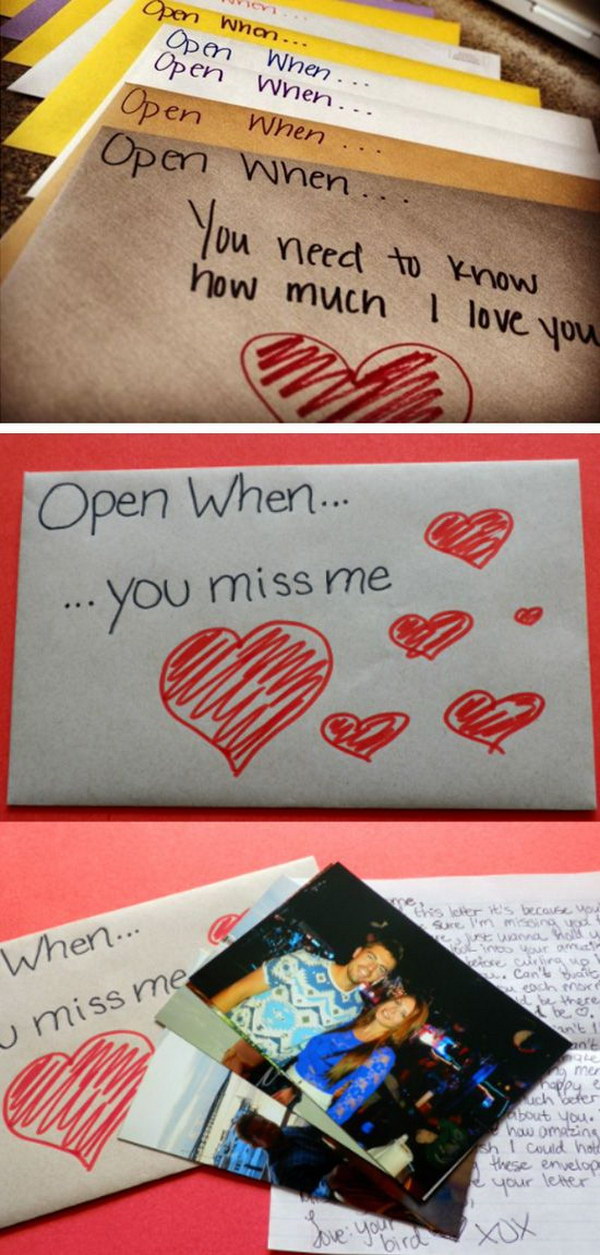 when...
Open When...
Open When...
Open When...
Open When...
Open When...
You need to know
how much I love you
Open When...
...you miss me
When...
u miss me
me,
this letter it's because you
sure I'm missing you t
just wanna
into your
before curling up
Can't
each morn
be there
be ♡.
happy e
about you.
how amazing
sh I could hold
these envelope
your letter
love: your
bird
XOX